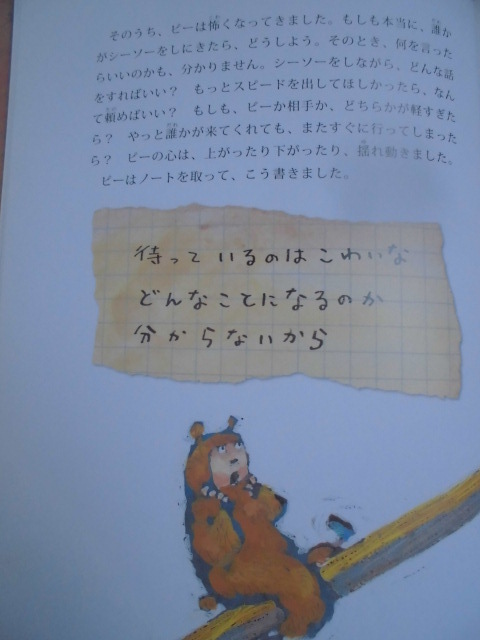 そのうち、ビーは怖くなってきました。もしも本当に、誰か
がシーソーをしにきたら、どうしよう。そのとき、何を言った
らいいのかも、分かりません。シーソーをしながら、どんな話
をすればいい？　もっとスピードを出してほしかったら、なん
て頼めばいい？　もしも、ビーか相手か、どちらかが軽すぎた
ら？　やっと誰かが来てくれても、またすぐに行ってしまった
ら？　ビーの心は、上がったり下がったり、揺れ動きました。
ビーはノートを取って、こう書きました。
待っているのはこわいな
どんなことになるのか
分からないから